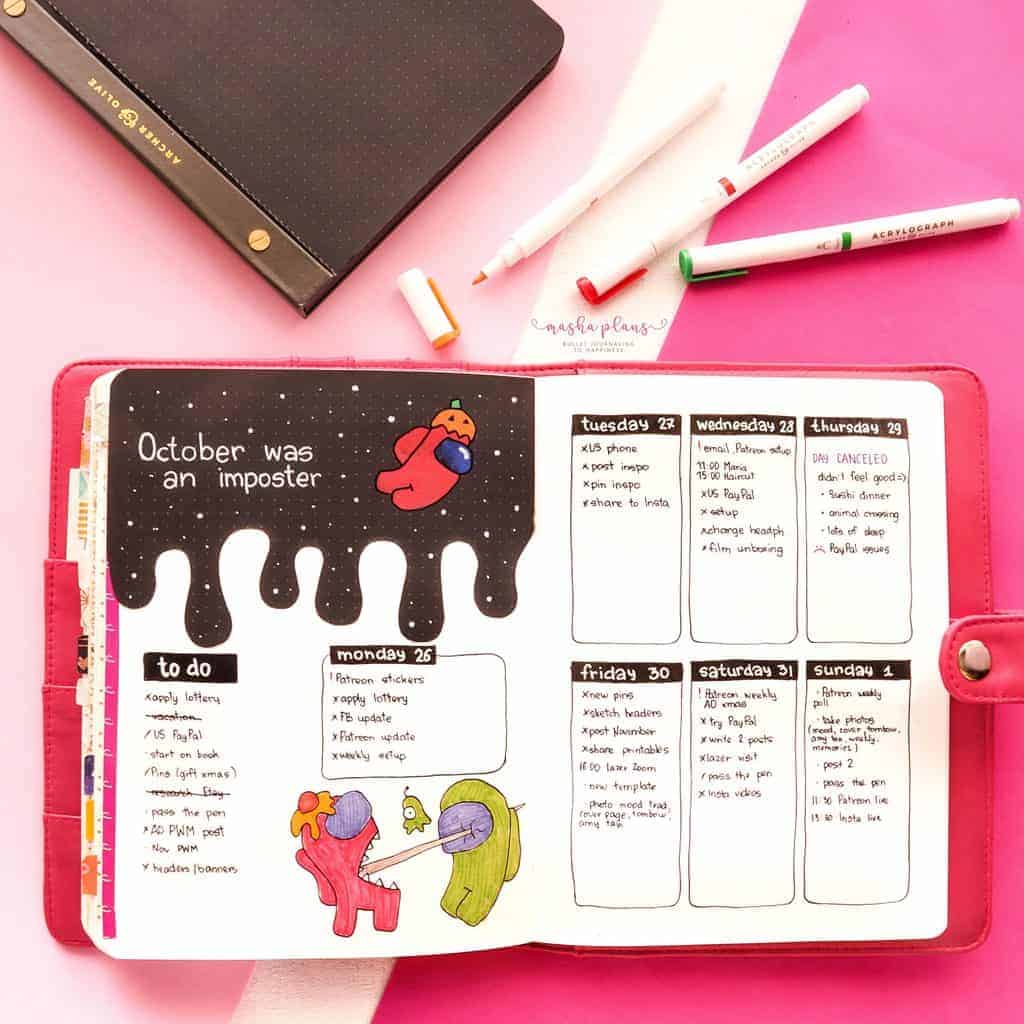 ARCHER & OLIVE
ACRYLOGRAPH
ACRYLOGRAPH
masha plans
BULLET JOURNALING
TO HAPPINESS
October was
an imposter
to do
x apply lottery
vacation
/ US PayPal
· start on book
/ Pins (gift xmas)
research Etsy
· pass the pen
x AO PWM post
· Nov PWM
x headers/banners
monday 26
! Patreon stickers
x apply lottery
x FB update
x Patreon update
x weekly setup
tuesday 27
x US phone
x post inspo
x pin inspo
x share to Insta
wednesday 28
! email Patreon setup
11:00 Maria
15:00 Haircut
x US PayPal
x setup
x change headph
x film unboxing
thursday 29
DAY CANCELED
didn't feel good =)
· Sushi dinner
· animal crossing
· lots of sleep
PayPal issues
friday 30
x new pins
x sketch headers
x post November
x share printables
16:00 lazer zoom
· new template
· photo mood trad,
cover page, tombow,
amy tan
saturday 31
! Patreon weekly
AO xmas
x try PayPal
x write 2 posts
x lazer visit
/ pass the pen
x Insta videos
sunday 1
· Patreon weekly
poll
· take photos
(mood, cover, tombow,
amy tan, weekly,
memories)
· post 2
· pass the pen
11:30 Patreon live
13:30 Insta live